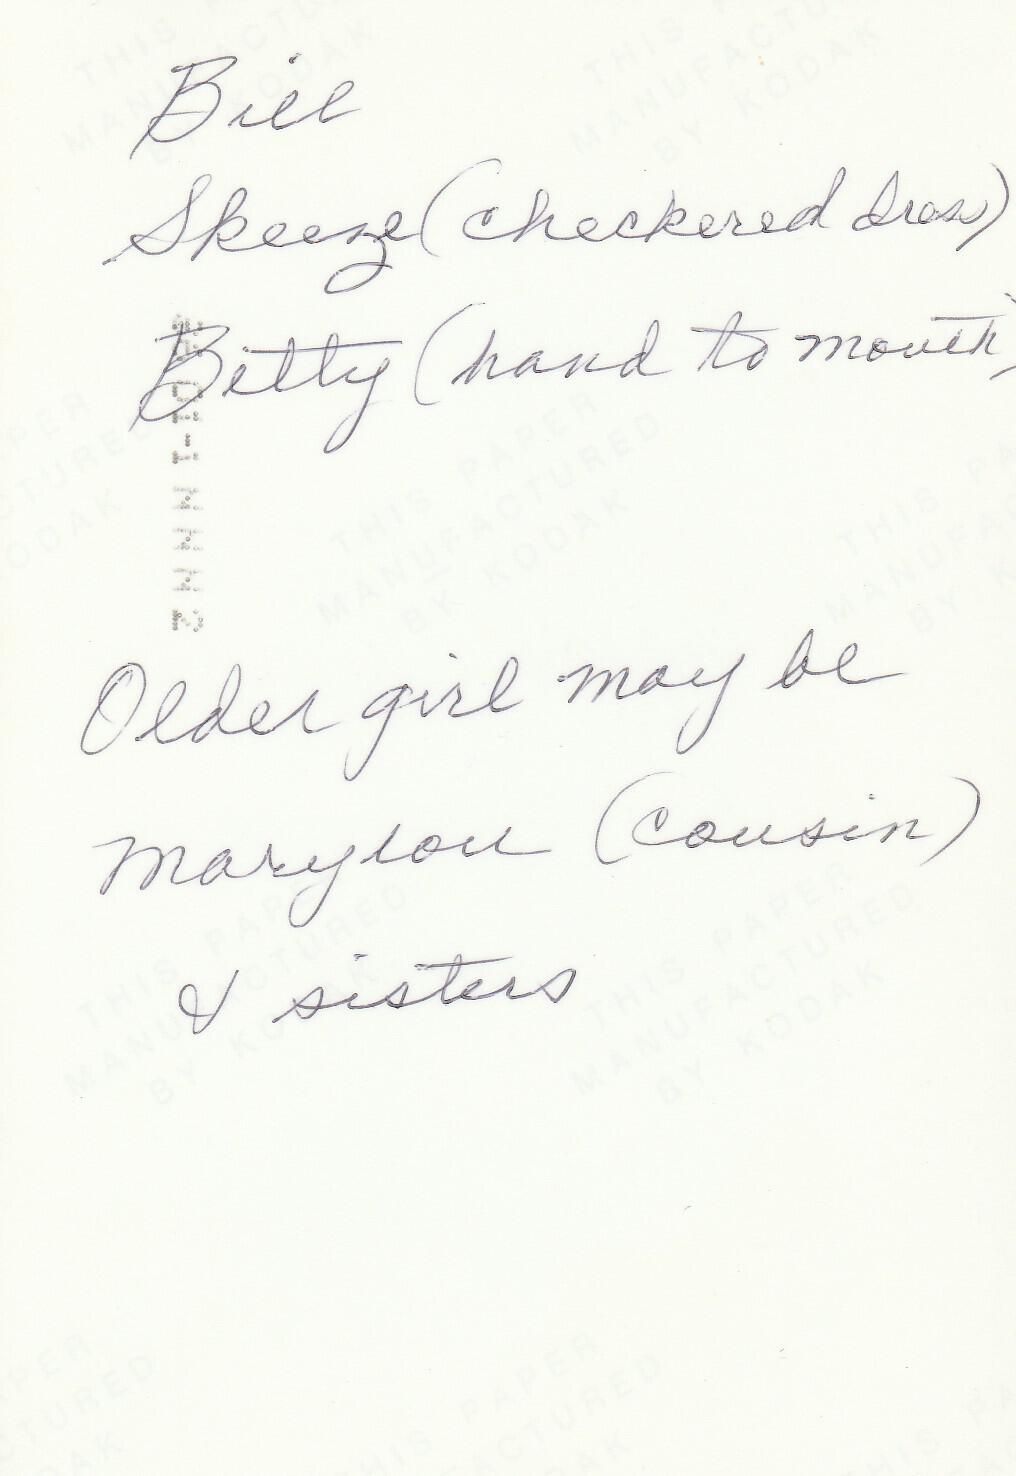 Bill
Skeeze (checkered dress)
Betty (hand to mouth)
Older girl may be
Marylou (cousin)
& sisters
THIS PAPER
MANUFACTURED
BY KODAK